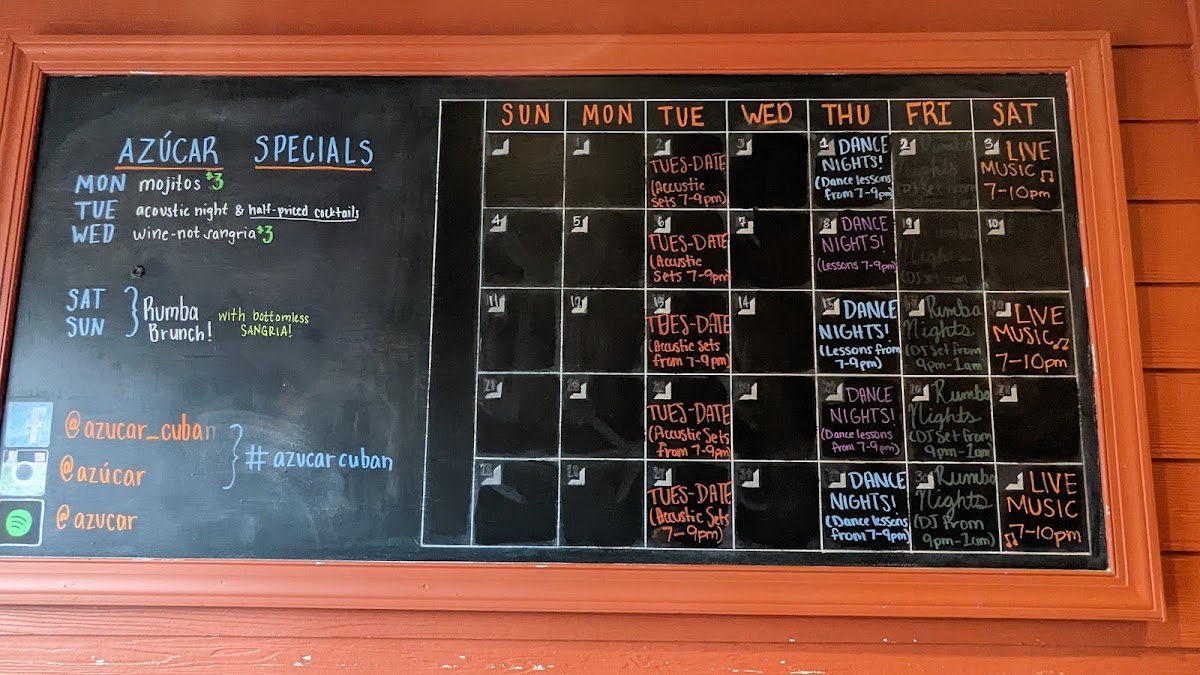 AZÚCAR SPECIALS
MON mojitos $3
TUE acoustic night & half-priced cocktails
WED wine-not sangria $3
SAT
SUN
Rumba
Brunch!
with bottomless
SANGRIA!
@azucar_cuban
@azúcar
@azucar
#azucarcuban
SUN MON TUE WED THU FRI SAT
2
TUES-DATE
(Accustic
Sets 7-9pm)
3
1 DANCE
NIGHTS!
(Dance lessons
from 7-9pm)
2
Rumba
Nights
3 LIVE
MUSIC
7-10pm
4
5
6
TUES-DATE
(Accustic
Sets 7-9pm)
7
8 DANCE
NIGHTS!
(Lessons 7-9pm)
9
10
11
12
13
TUES-DATE
(Accustic Sets
from 7-9pm)
14
15 DANCE
NIGHTS!
(Lessons from
7-9pm)
Rumba
Nights
(DJ Set from
9pm-1am)
LIVE
MUSIC
7-10pm
TUES-DATE
(Accustic Sets
from 7-9pm)
DANCE
NIGHTS!
(Dance lessons
from 7-9pm)
Rumba
Nights
(DJ Set from
9pm-1am)
TUES-DATE
(Accustic Sets
7-9pm)
DANCE
NIGHTS!
(Dance lessons
from 7-9pm)
Rumba
Nights
(DJ from
9pm-1am)
LIVE
MUSIC
7-10pm